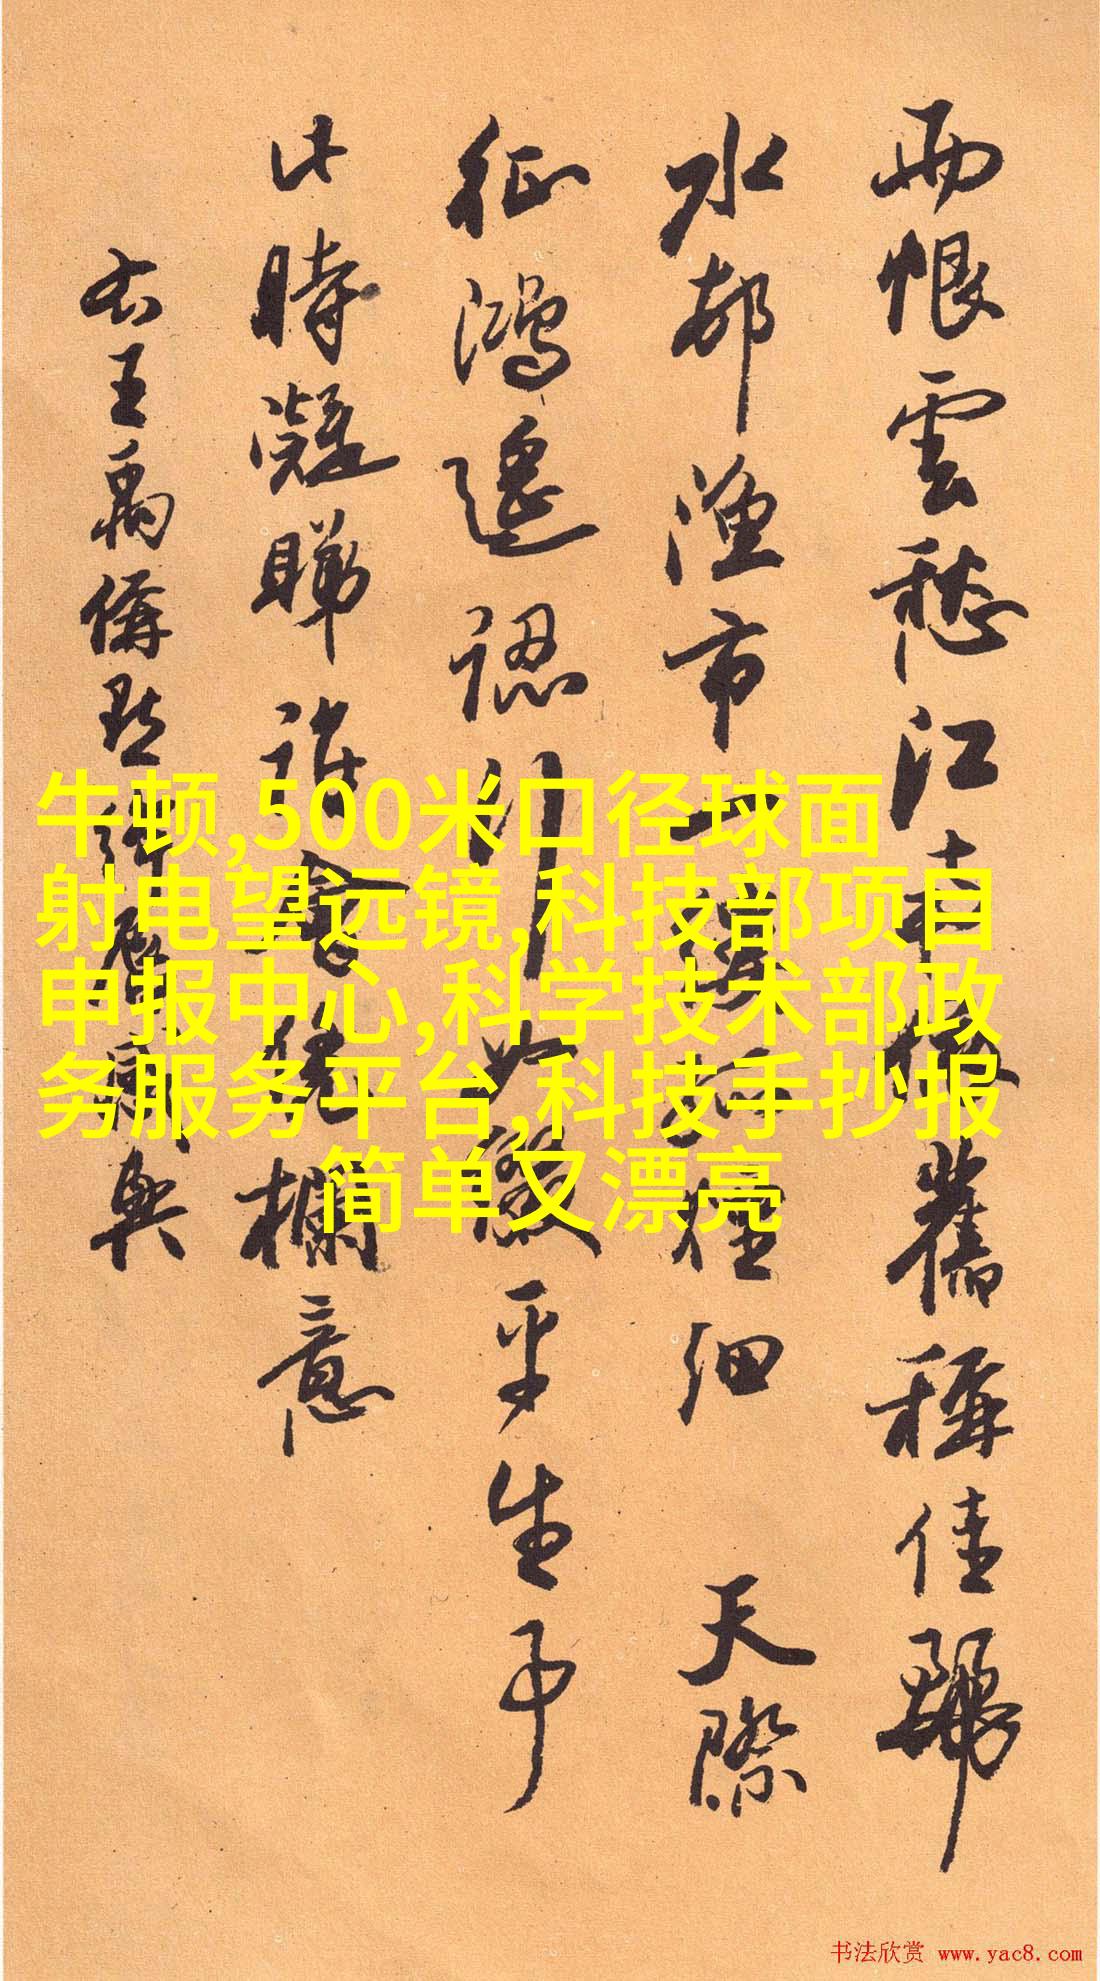 雨恨雲愁江南依舊稱佳麗
水邨漁市一縷孤煙細 天際
征鴻遙認行如綴平生事
此時凝睇誰會凭欄意
右王禹偁點絳脣 感興
牛顿,500米口径球面
射电望远镜,科技部项目
申报中心,科学技术部政
务服务平台,科技手抄报
简单又漂亮
书法欣赏 www.yac8.com